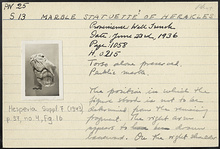 PN 25
S 13 MARBLE STATUETTE OF HERAKLES
Provenience: Well Trench
Date: June 22nd, 1936
Page: 1058
H. 0.215
Torso alone preserved.
Parian marble
The position in which the
figure stood is not to be
determined from the
fragment. The right arm
appears to have been drawn
On the right shoulder
Hesperia Suppl. 7. (1943)
p. 37, no. 4, Fig. 16